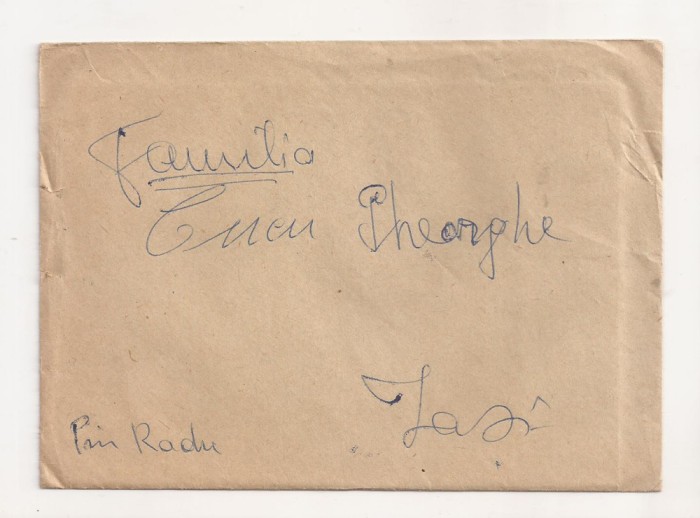 Familia
Gheorghe
Iași
Prin Radu